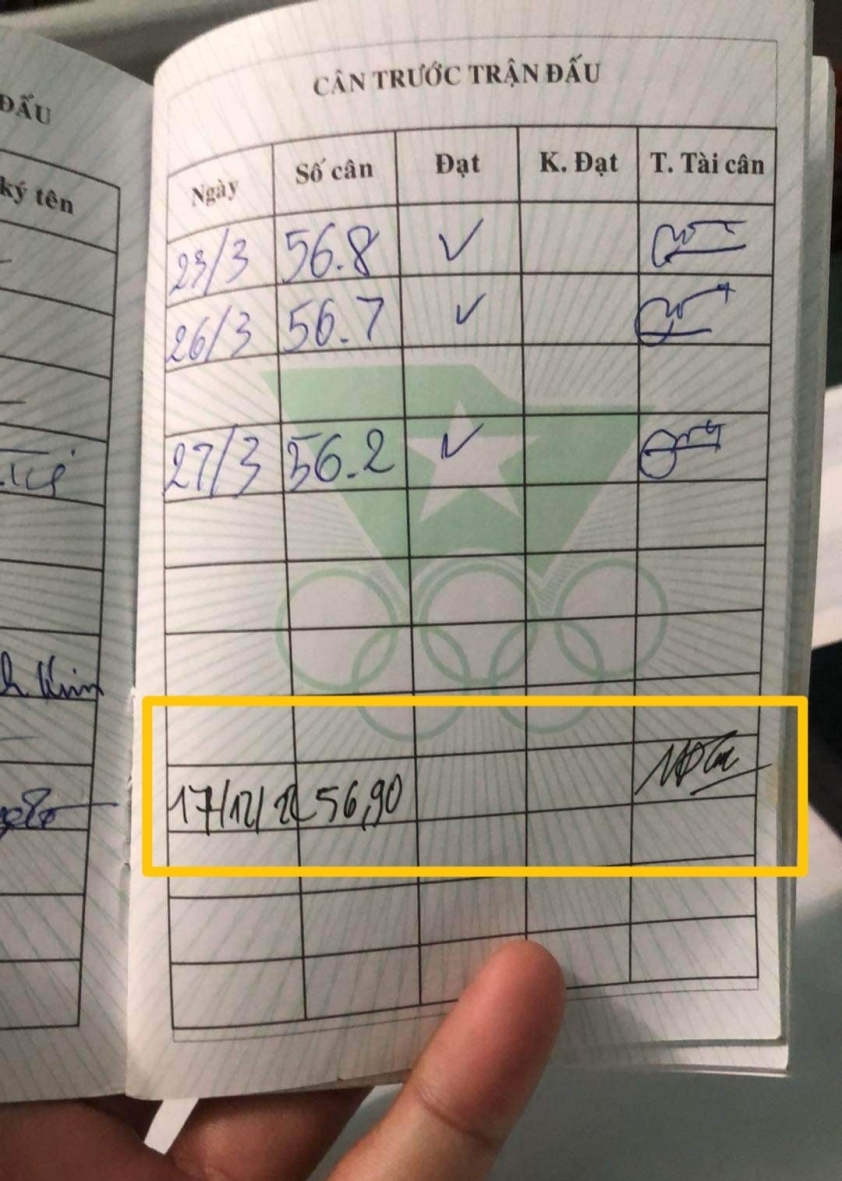 ĐẤU
ký tên
CÂN TRƯỚC TRẬN ĐẤU
Ngày Số cân Đạt K. Đạt T. Tài cân
23/3 56.8 ✓
26/3 56.7 ✓
27/3 56.2 ✓
17/12/ 56,90